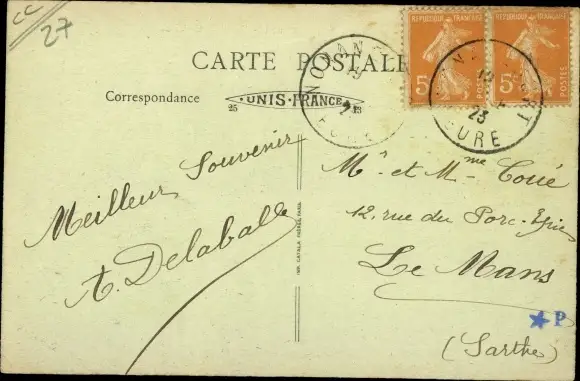 CC
27
CARTE POSTALE
Correspondance
25 ·UNIS-FRANCE· 23
REPUBLIQUE FRANÇAISE
5c
POSTES
REPUBLIQUE FRANÇAISE
5c
POSTES
23
EURE
Meilleur Souvenir
A. Delaballe
IMP. CATALA FRÈRES, PARIS
Mr et Mme Coué
12, rue du Porc-Epic
Le Mans
★ P
(Sarthe)